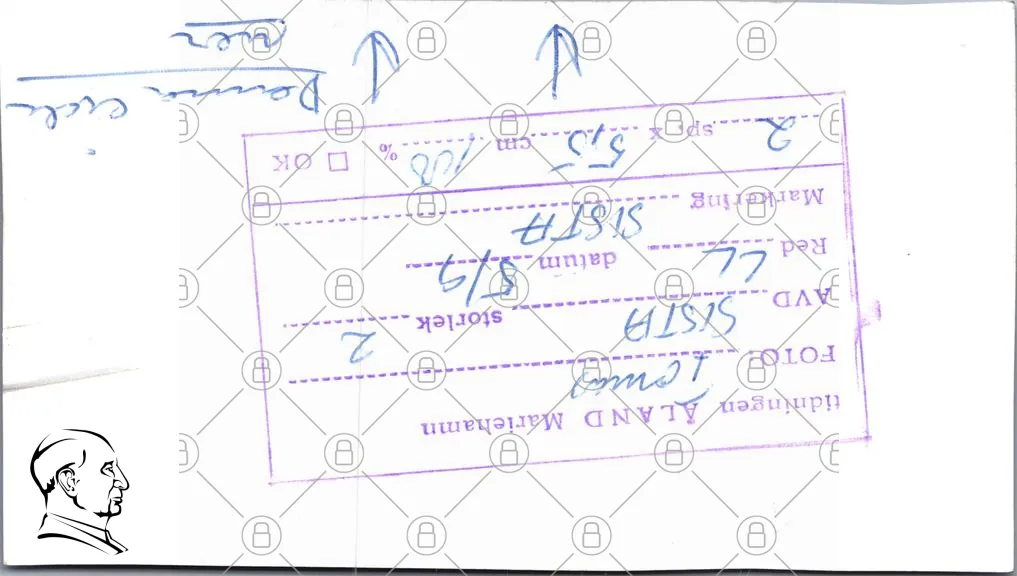 tidningen ÅLAND Mariehamn
FOTO: Tomas
AVD SISTA storlek 2
Red LL datum 5/9
Markering SISTA
2 sp. x 5,5 cm 100 % OK
Denna sida
ner